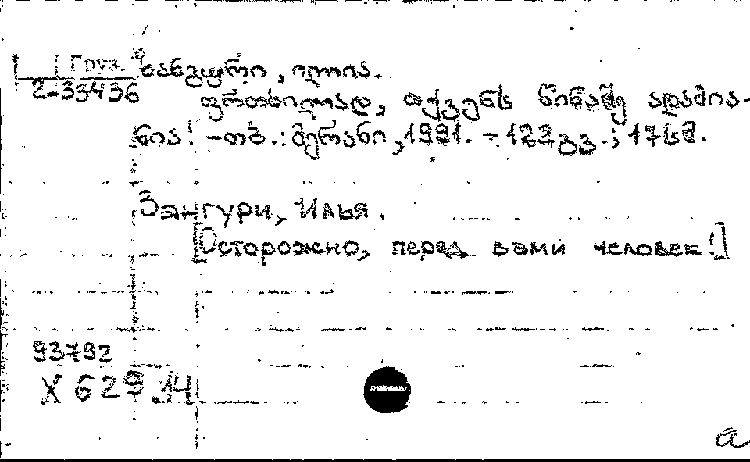 Груз.
2-33436
ზანგური, ილია.
ფრთხილად, თქვენს წინაშე ადამია-
ნია! -თბ.: მერანი, 1991. - 122გვ.; 17სმ.
Зангури, Илья.
[Осторожно, перед вами человек!]
93792
X 629.14
a